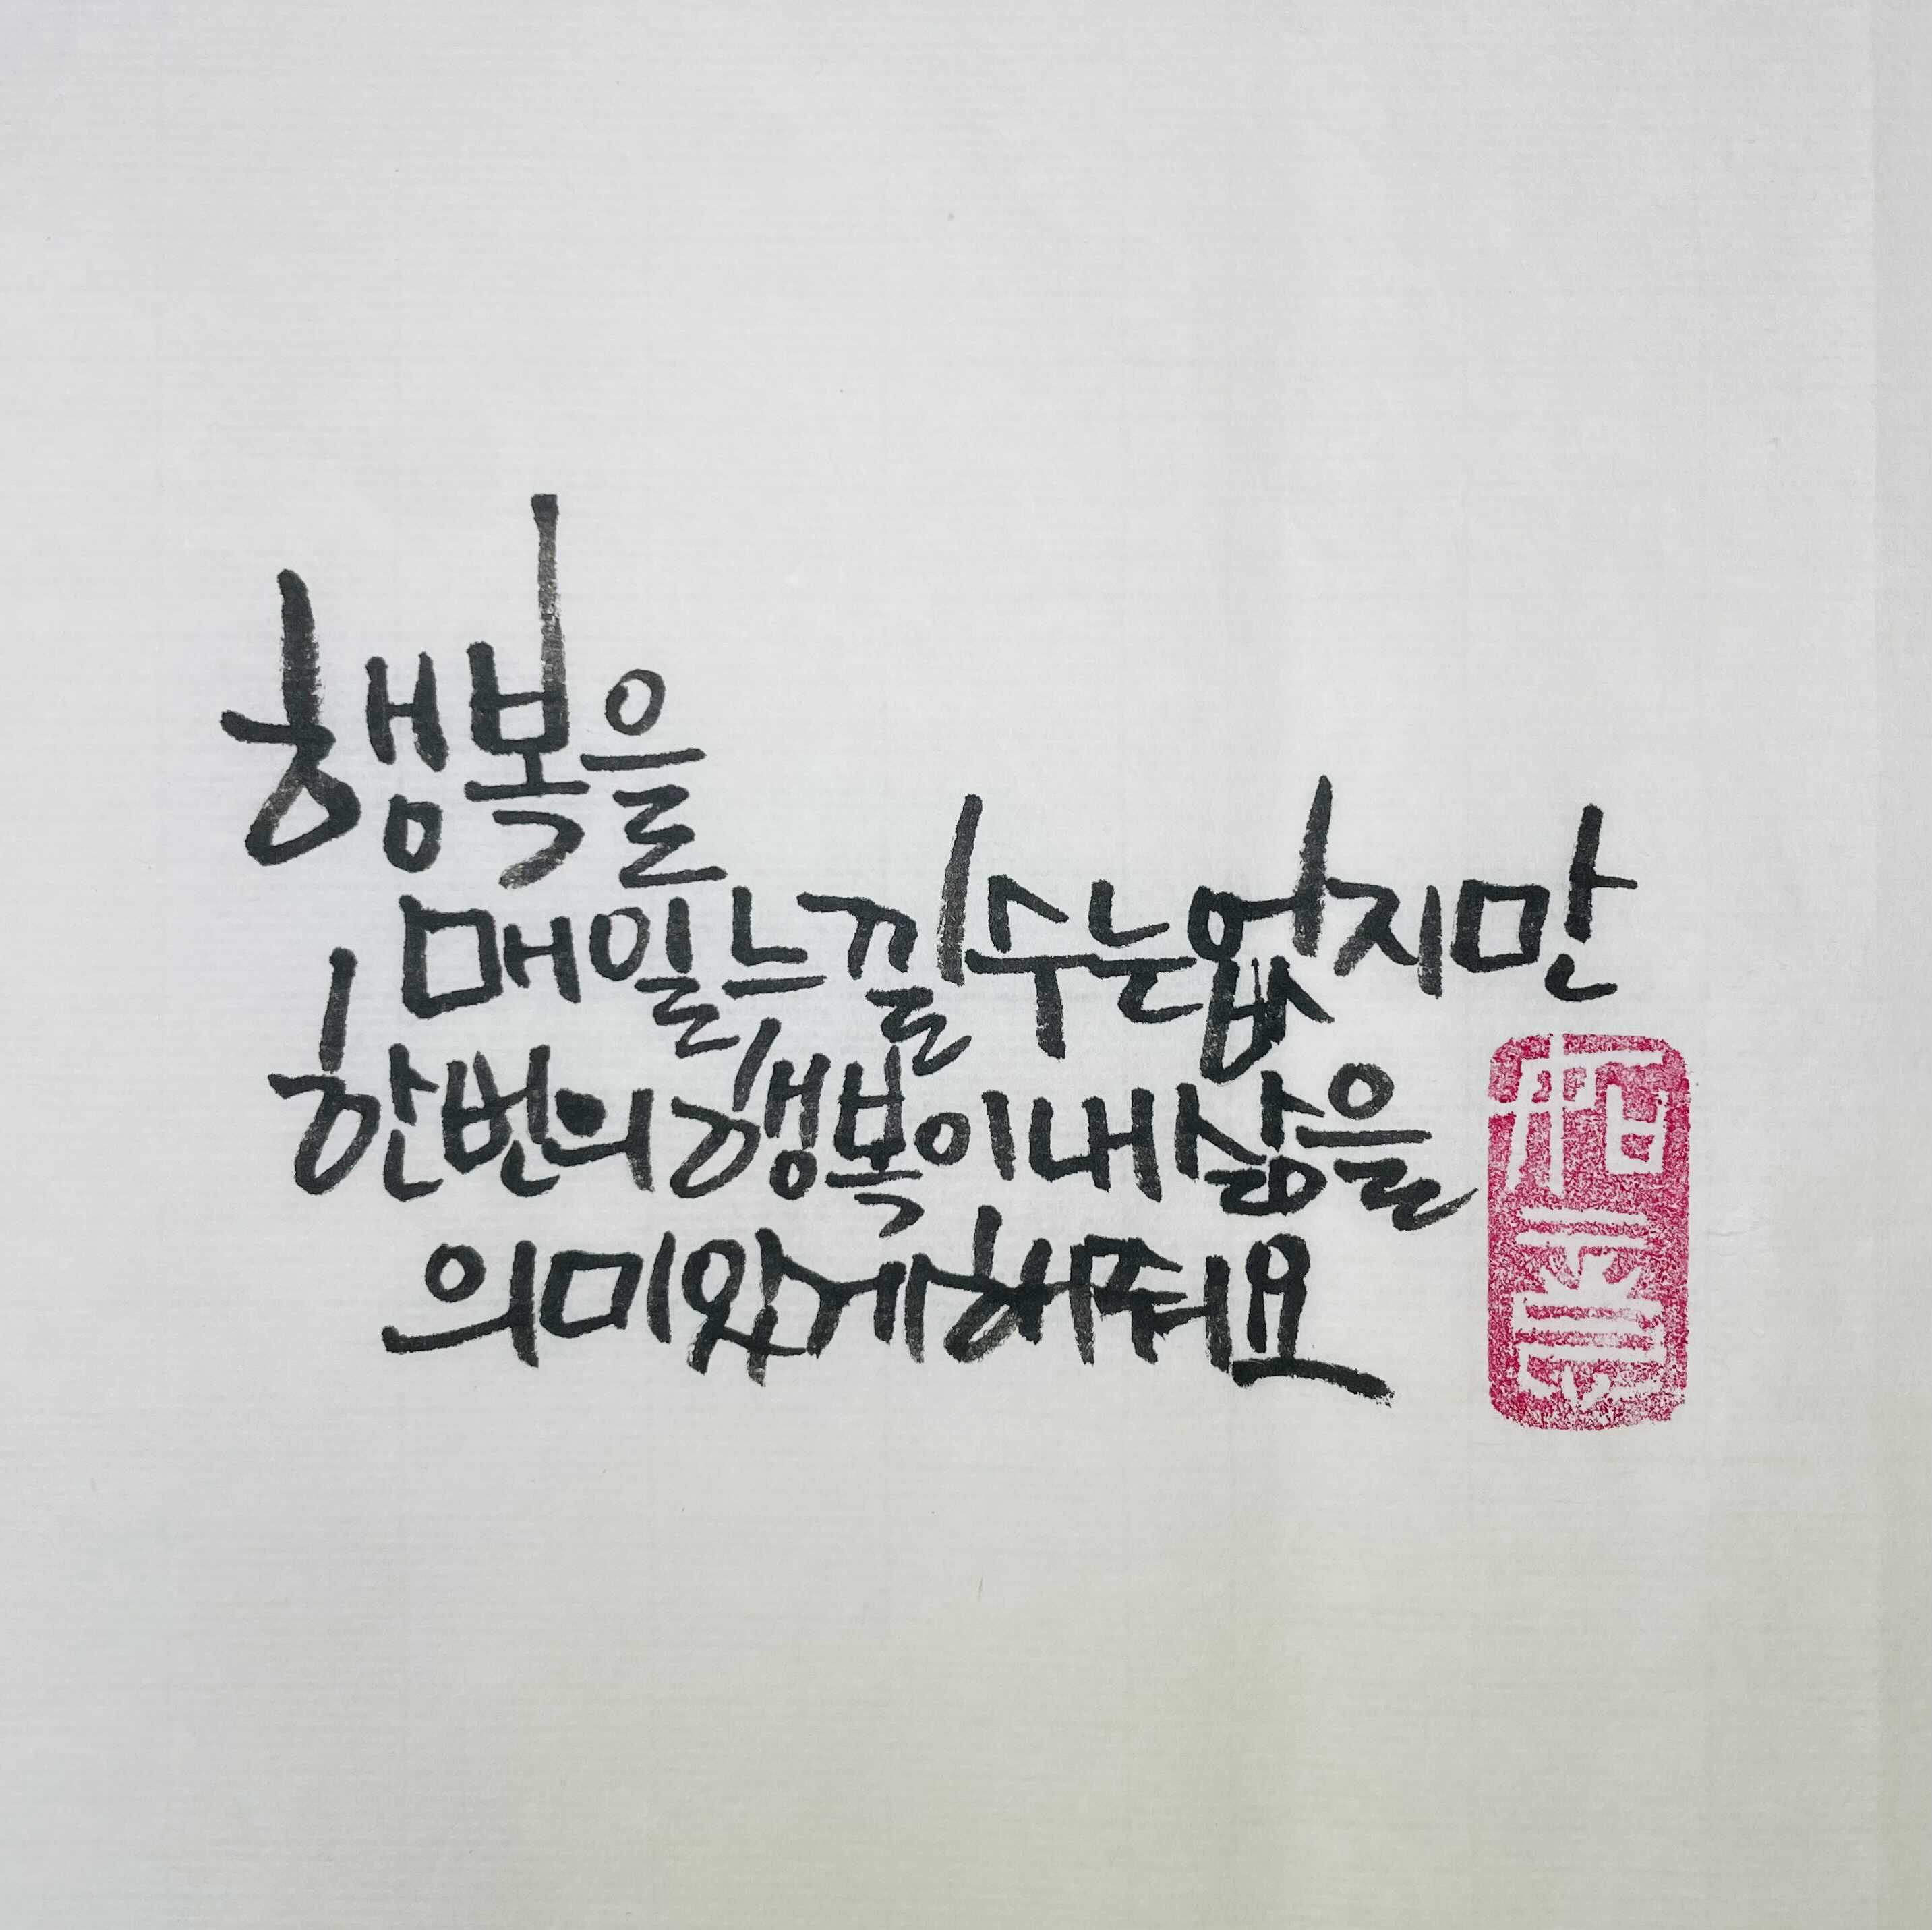 행복을
매일 느낄 수는 없지만
한번의 행복이 내 삶을
의미있게 해줘요